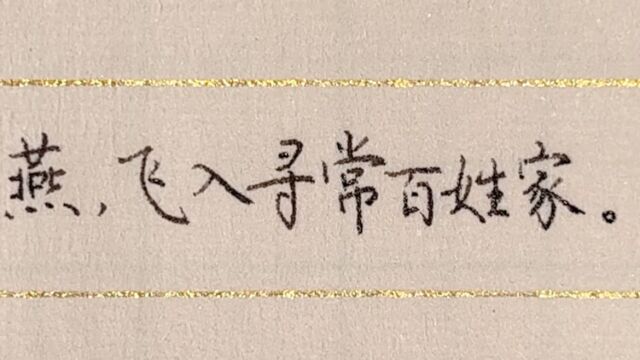 燕,飞入寻常百姓家。